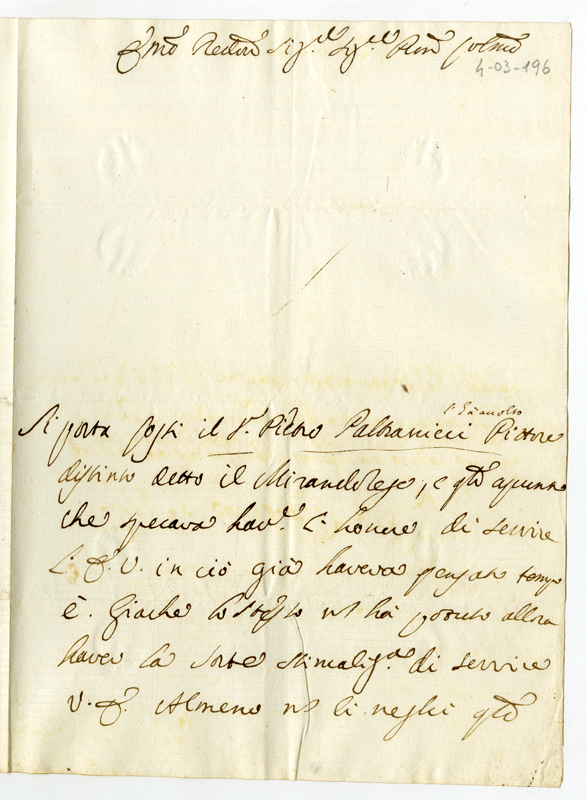 Emo Sig.r Sig.r
4-03-196
Si porta costì il S.r Pietro Paltronieri Pittore
distinto detto il Mirandolese, e qto appunto
che sperava hav.e l'honore di servire
L'E.V. in ciò già haveva pensato tempo
è. Giache lo stesso nò hà potuto allora
haver la sorte stimatiss.a di servire
V.E. Almeno nò li neghi qto